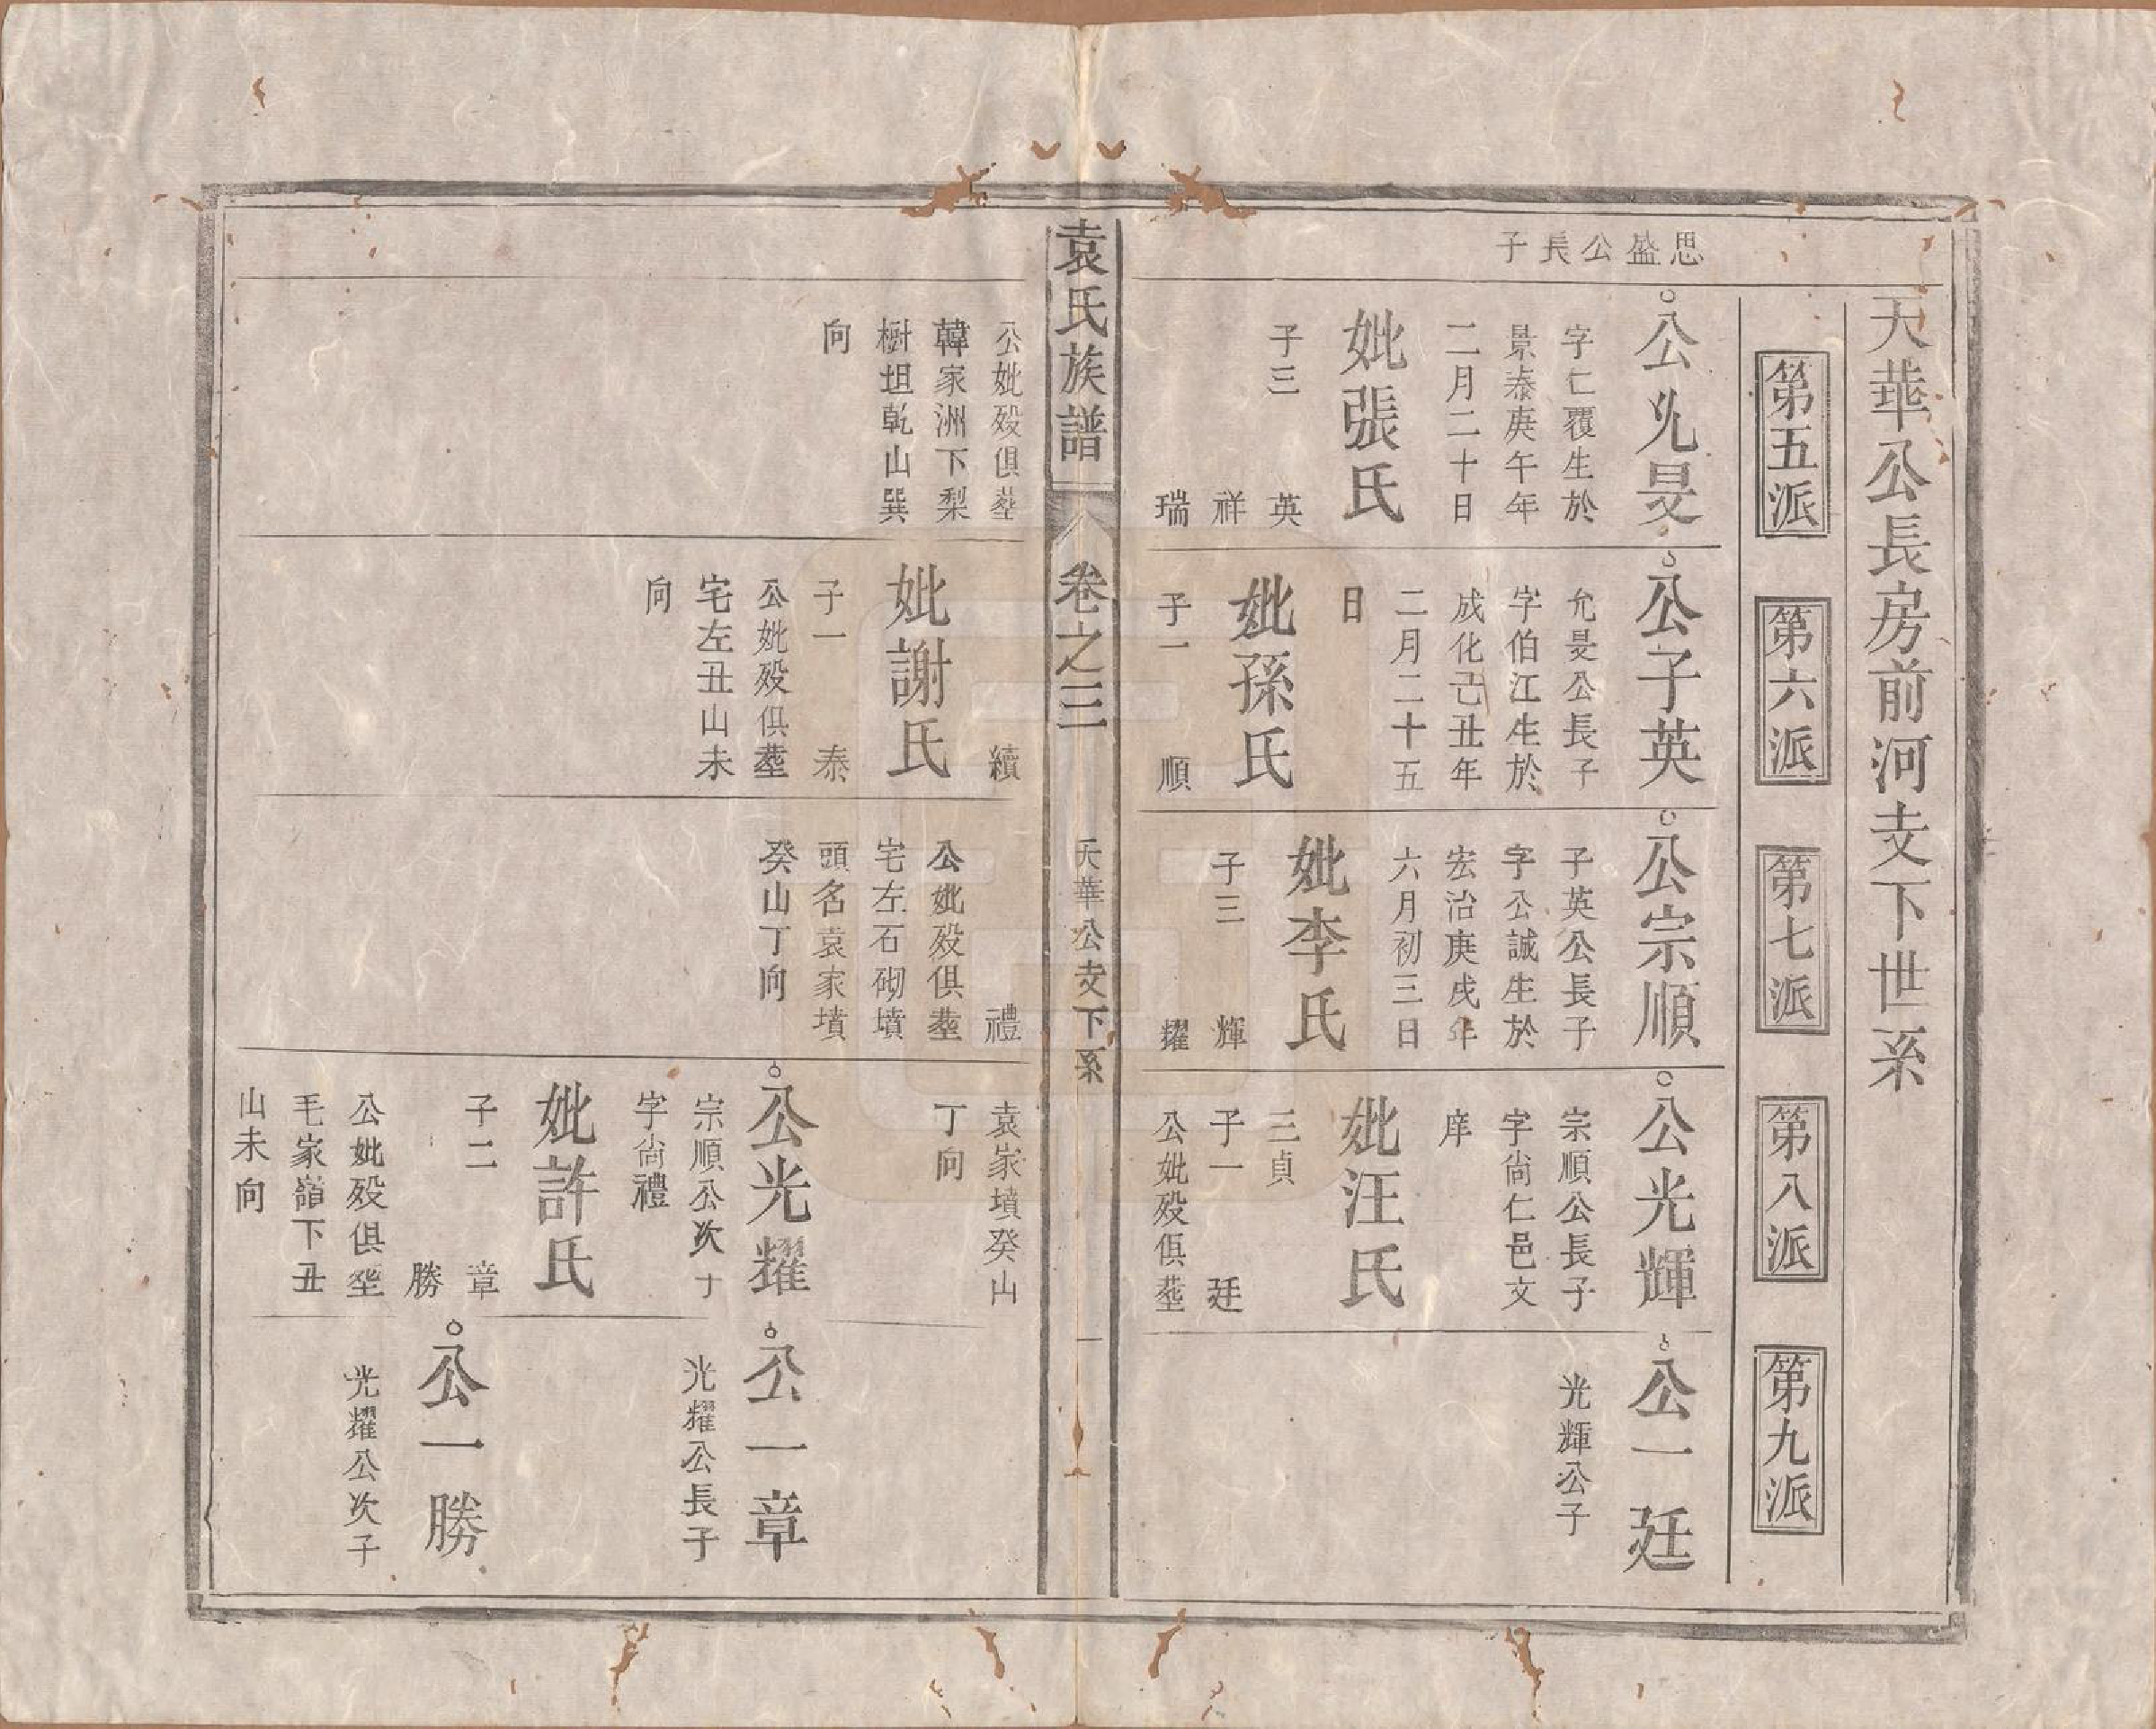 天華公長房前河支下世系
第五派
第六派
第七派
第八派
第九派
思盛公長子
公允旻
字仁覆生於
景泰庚午年
二月二十日
妣張氏
子三 英
祥
瑞
公子英
允旻公長子
字伯江生於
成化己丑年
二月二十五
日
妣孫氏
子一 順
公宗順
子英公長子
字公誠生於
宏治庚戌年
六月初三日
妣李氏
子三 輝
耀
公光輝
宗順公長子
字尚仁邑文
庠
妣汪氏
三貞
子一 廷
公妣歿俱塟
公一廷
光輝公子
袁氏族譜
卷之三
天華公支下系
一
公妣歿俱塟
韓家洲下梨
樹坦乾山巽
向
續
妣謝氏
子一 泰
公妣歿俱塟
宅左丑山未
向
禮
公妣歿俱塟
宅左石砌墳
頭名袁家墳
癸山丁向
袁家墳癸山
丁向
公光耀
宗順公次子
字尚禮
妣許氏
子二 章
勝
公妣歿俱塟
毛家嶺下丑
山未向
公一章
光耀公長子
公一勝
光耀公次子